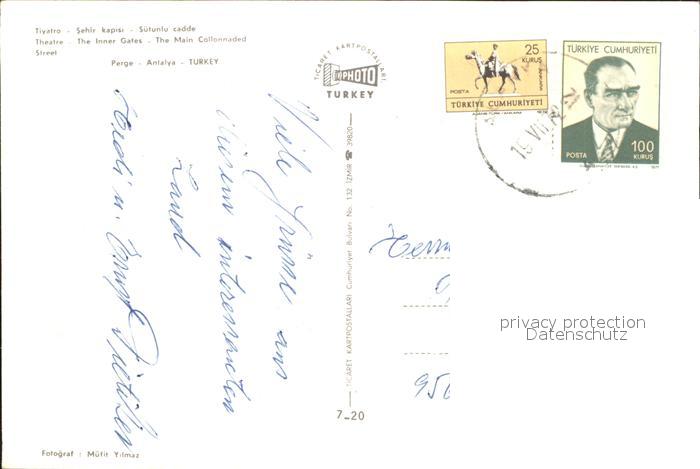 Tiyatro - Şehir kapısı - Sütunlu cadde
Theatre - The Inner Gates - The Main Collonnaded
Street
Perge - Antalya - TURKEY
TİCARET KARTPOSTALLARI
PHOTO
TURKEY
25
KURUŞ
ANKARA
POSTA
TÜRKİYE CUMHURİYETİ
TÜRKİYE CUMHURİYETİ
POSTA
100
KURUŞ
Viele Grüsse aus
diesem interessanten
Land
TİCARET KARTPOSTALLARI Cumhuriyet Bulvarı No. 132 İZMİR ☎ 39820
7-20
privacy protection
Datenschutz
Fotoğraf : Müfit Yılmaz